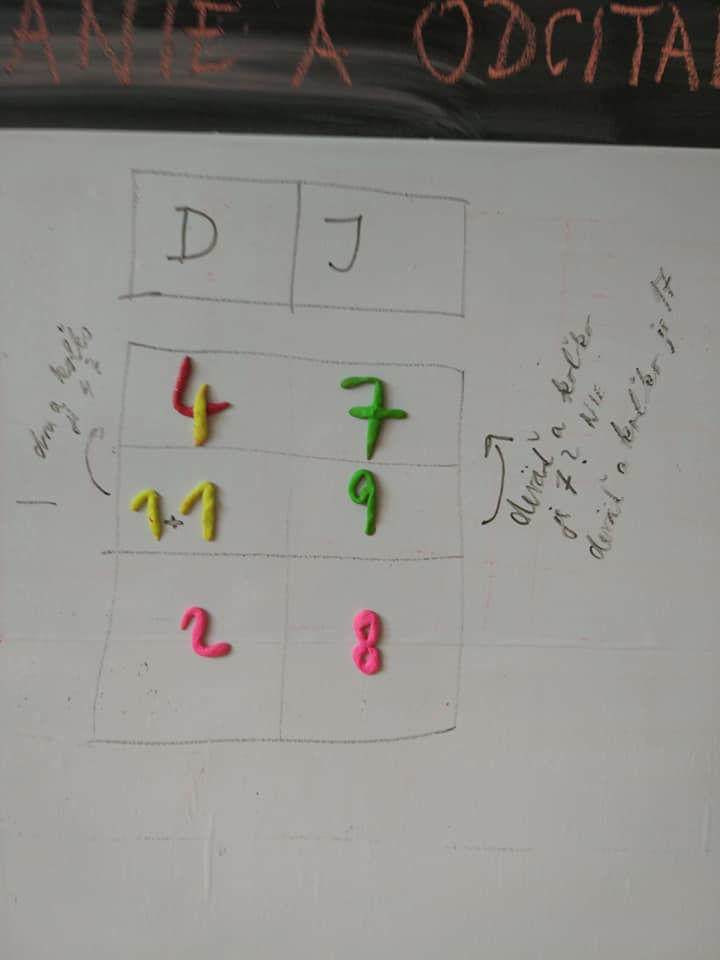 ANIE A ODCITA
D J
4 7
1+1 9
2 8
dva a koľko
je 4?
deväť a koľko
je 7? NIE
deväť a koľko je 17